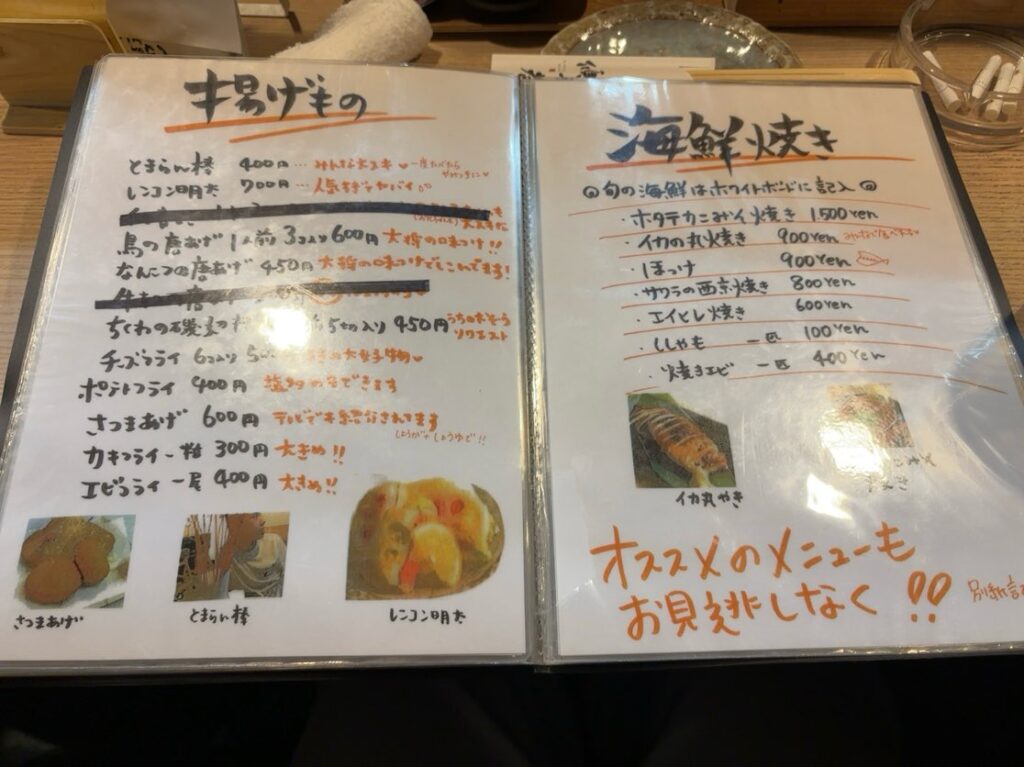 揚げもの
とまらん棒 400円…みんな大スキ♡
レンコン明太 700円…人気すぎてヤバイ
鳥の唐あげ 1人前 3コ入り 600円 大将の味つけ!!
なんこつの唐あげ 450円 大将の味つけでしこんでます!
ちくわの磯辺 5切入り 450円 リクエスト
チーズフライ 6コ入り 大好物♡
ポテトフライ 400円 できます
さつまあげ 600円 テレビでも紹介されてます
しょうが+しょうゆで!!
カキフライ一粒 300円 大きめ!!
エビフライ一尾 400円 大きめ!!
さつまあげ
とまらん棒
レンコン明太
海鮮焼き
◎旬の海鮮はホワイトボードに記入◎
・ホタテカニみそ焼き 1,500yen
・イカの丸焼き 900yen
・ほっけ 900yen
・サワラの西京焼き 800yen
・エイヒレ焼き 600yen
・ししゃも 一匹 100yen
・焼きエビ 一匹 400yen
イカ丸やき
オススメのメニューも
お見逃しなく!!